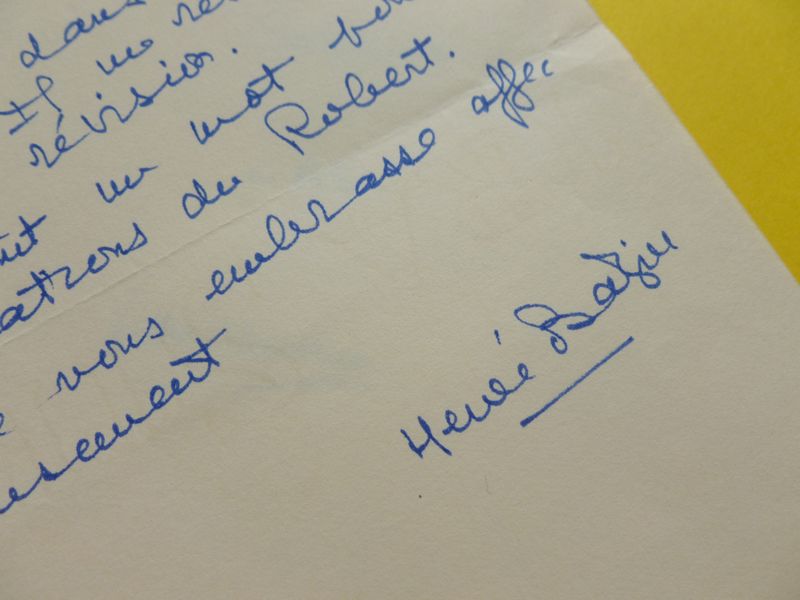 dans
Il me re
révision.
un mot pou
atrons du Robert.
vous embrasse affec
Hervé Bazin